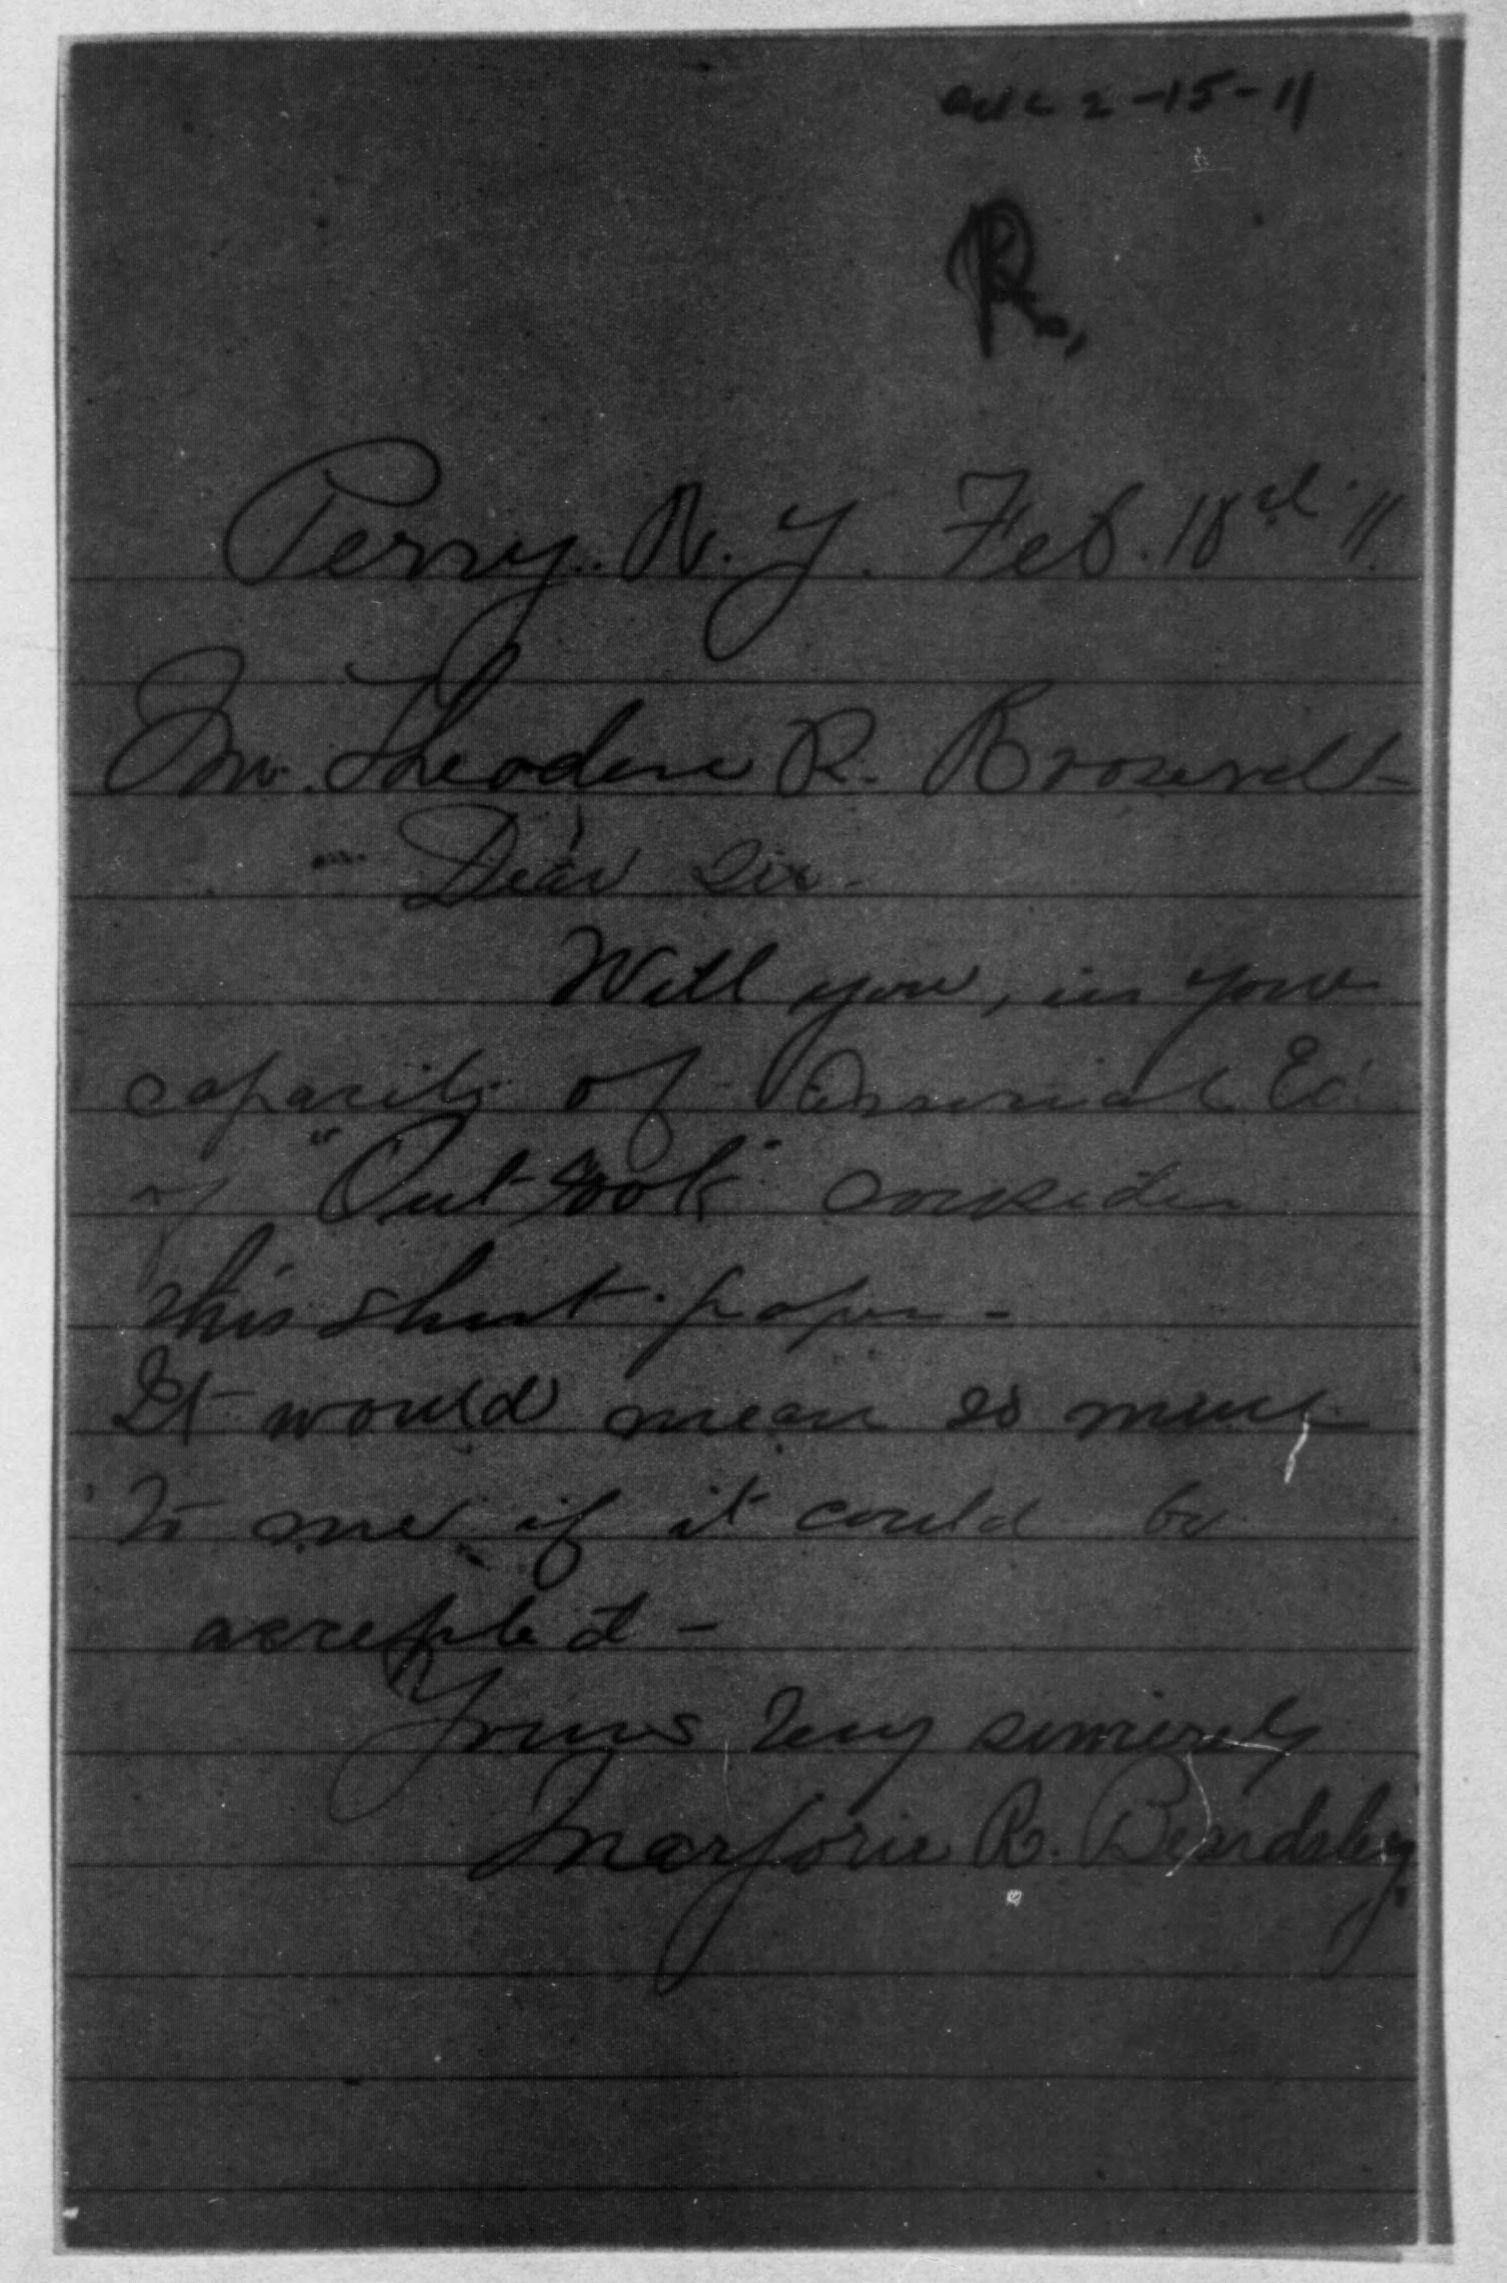 Ack 2-15-11
R.
Perry. N. Y. Feb. 13rd 11.
Mr. Theodore R. Roosevelt
Dear Sir.
Will you, in your
capacity of Ed.
of "Outlook" consider
this short paper -
It would mean so much
to me if it could be
accepted -
Yours very sincerely
Marjorie R. Beardsley.